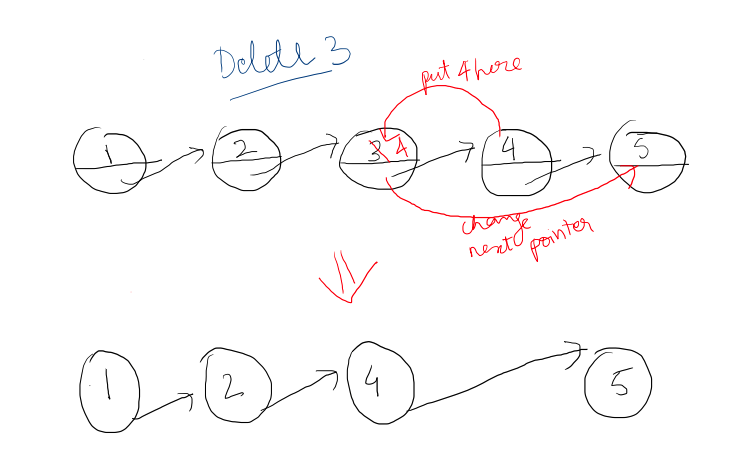 Delete 3
put 4 here
1 2 3 4 4 5
change
next pointer
1 2 4 5